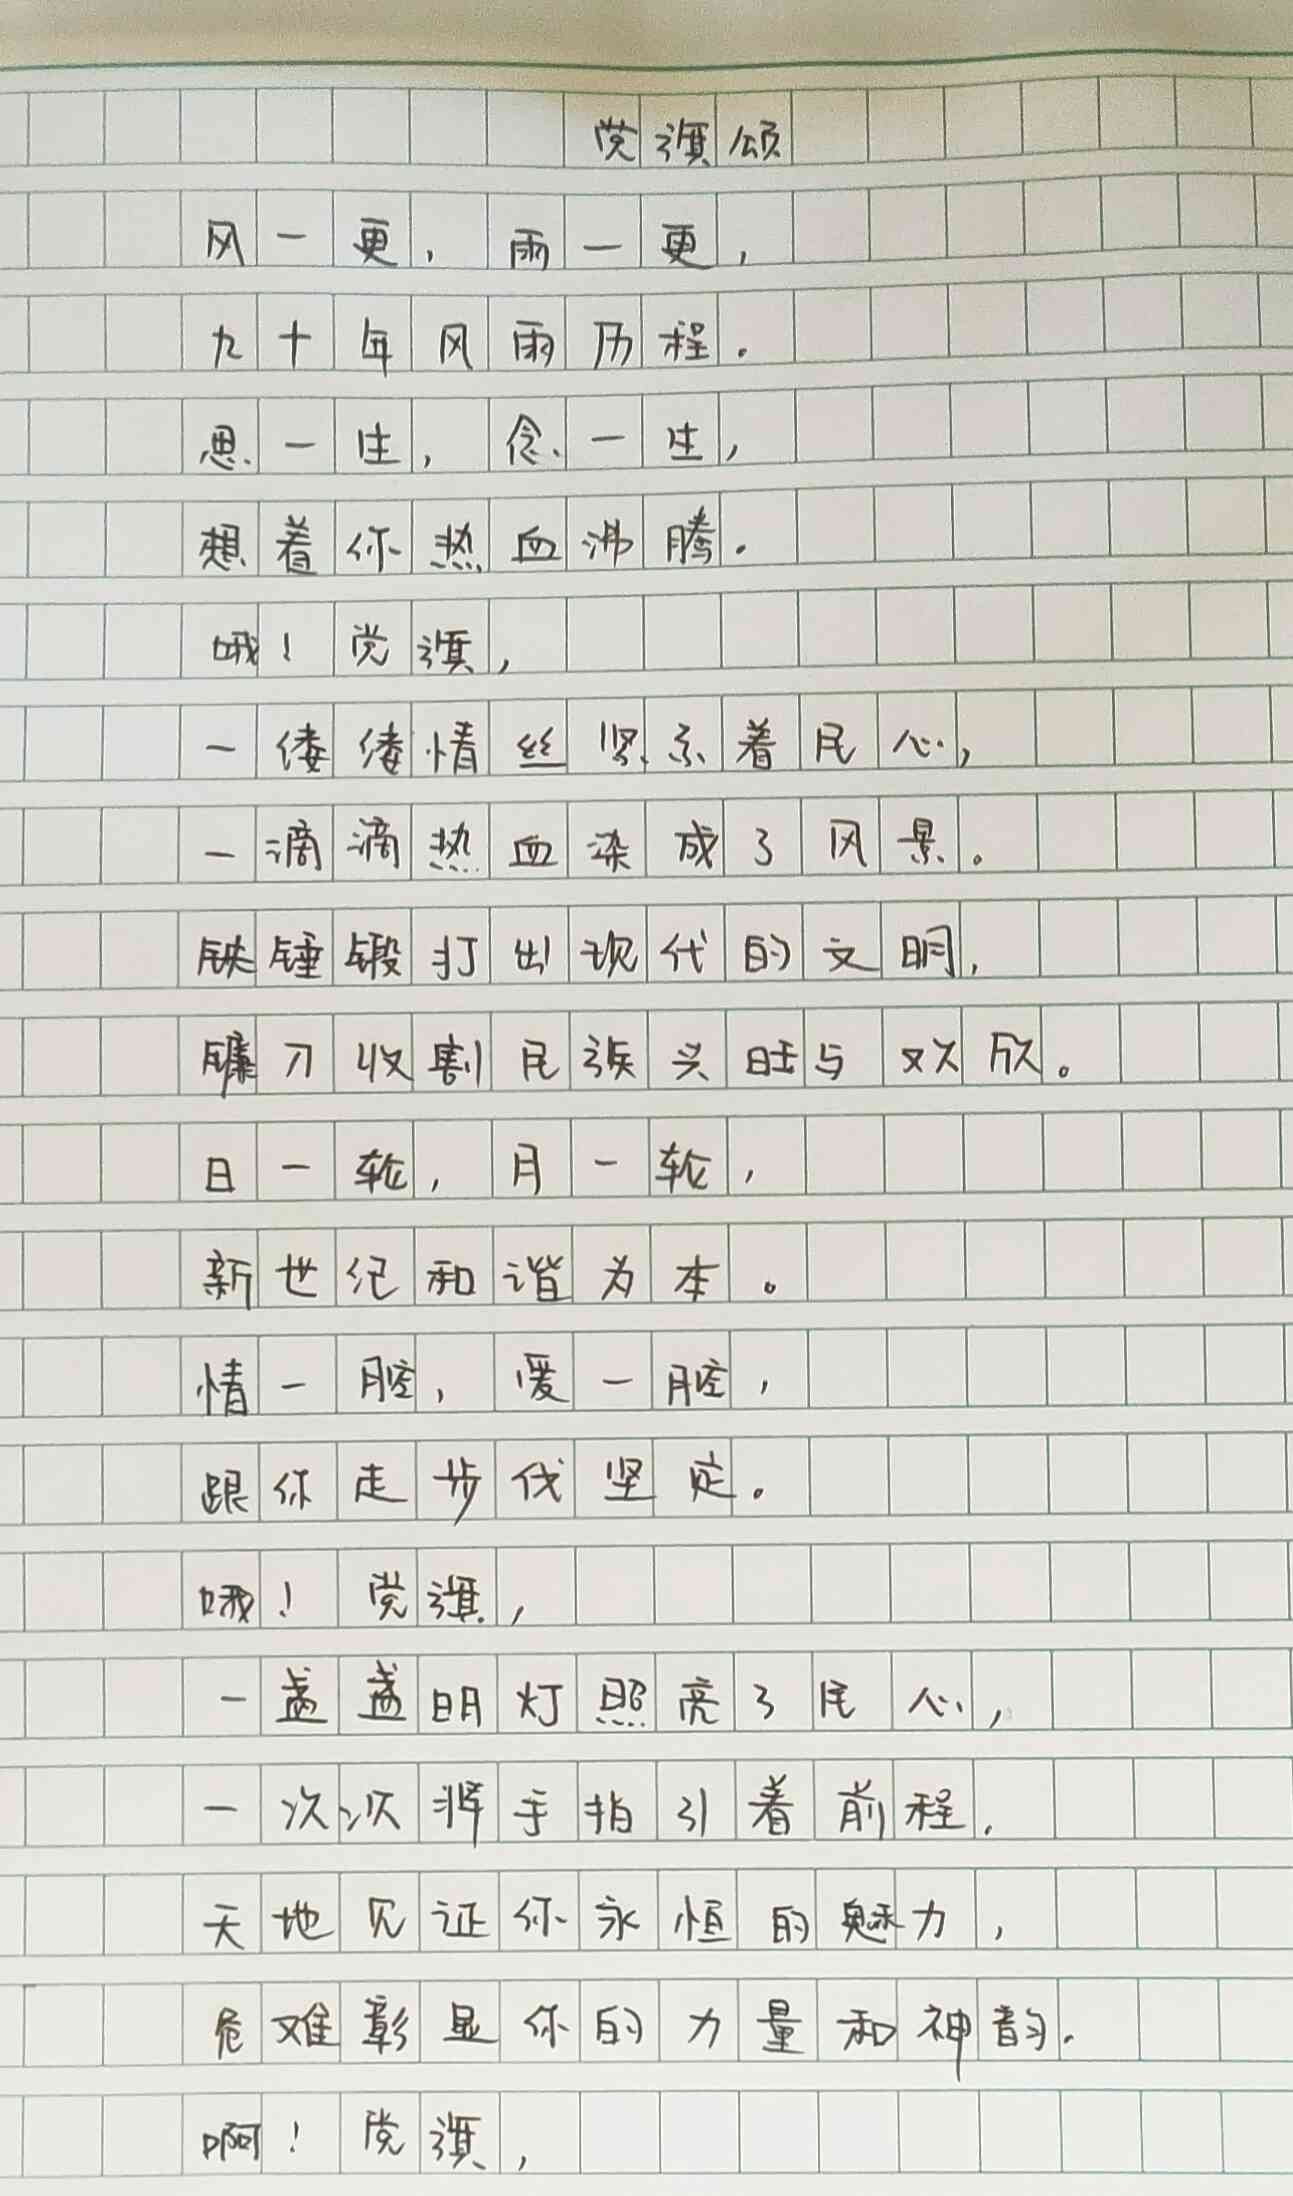 党旗颂
风一更，雨一更，
九十年风雨历程.
思一生，念一生，
想着你热血沸腾.
哦！党旗，
一缕缕情丝紧系着民心，
一滴滴热血染成了风景。
铁锤锻打出现代的文明，
镰刀收割民族兴旺与欢欣。
日一轮，月一轮，
新世纪和谐为本。
情一腔，爱一腔，
跟你走步伐坚定。
哦！党旗，
一盏盏明灯照亮了民心，
一次次挥手指引着前程.
天地见证你永恒的魅力，
危难彰显你的力量和神韵.
啊！党旗，